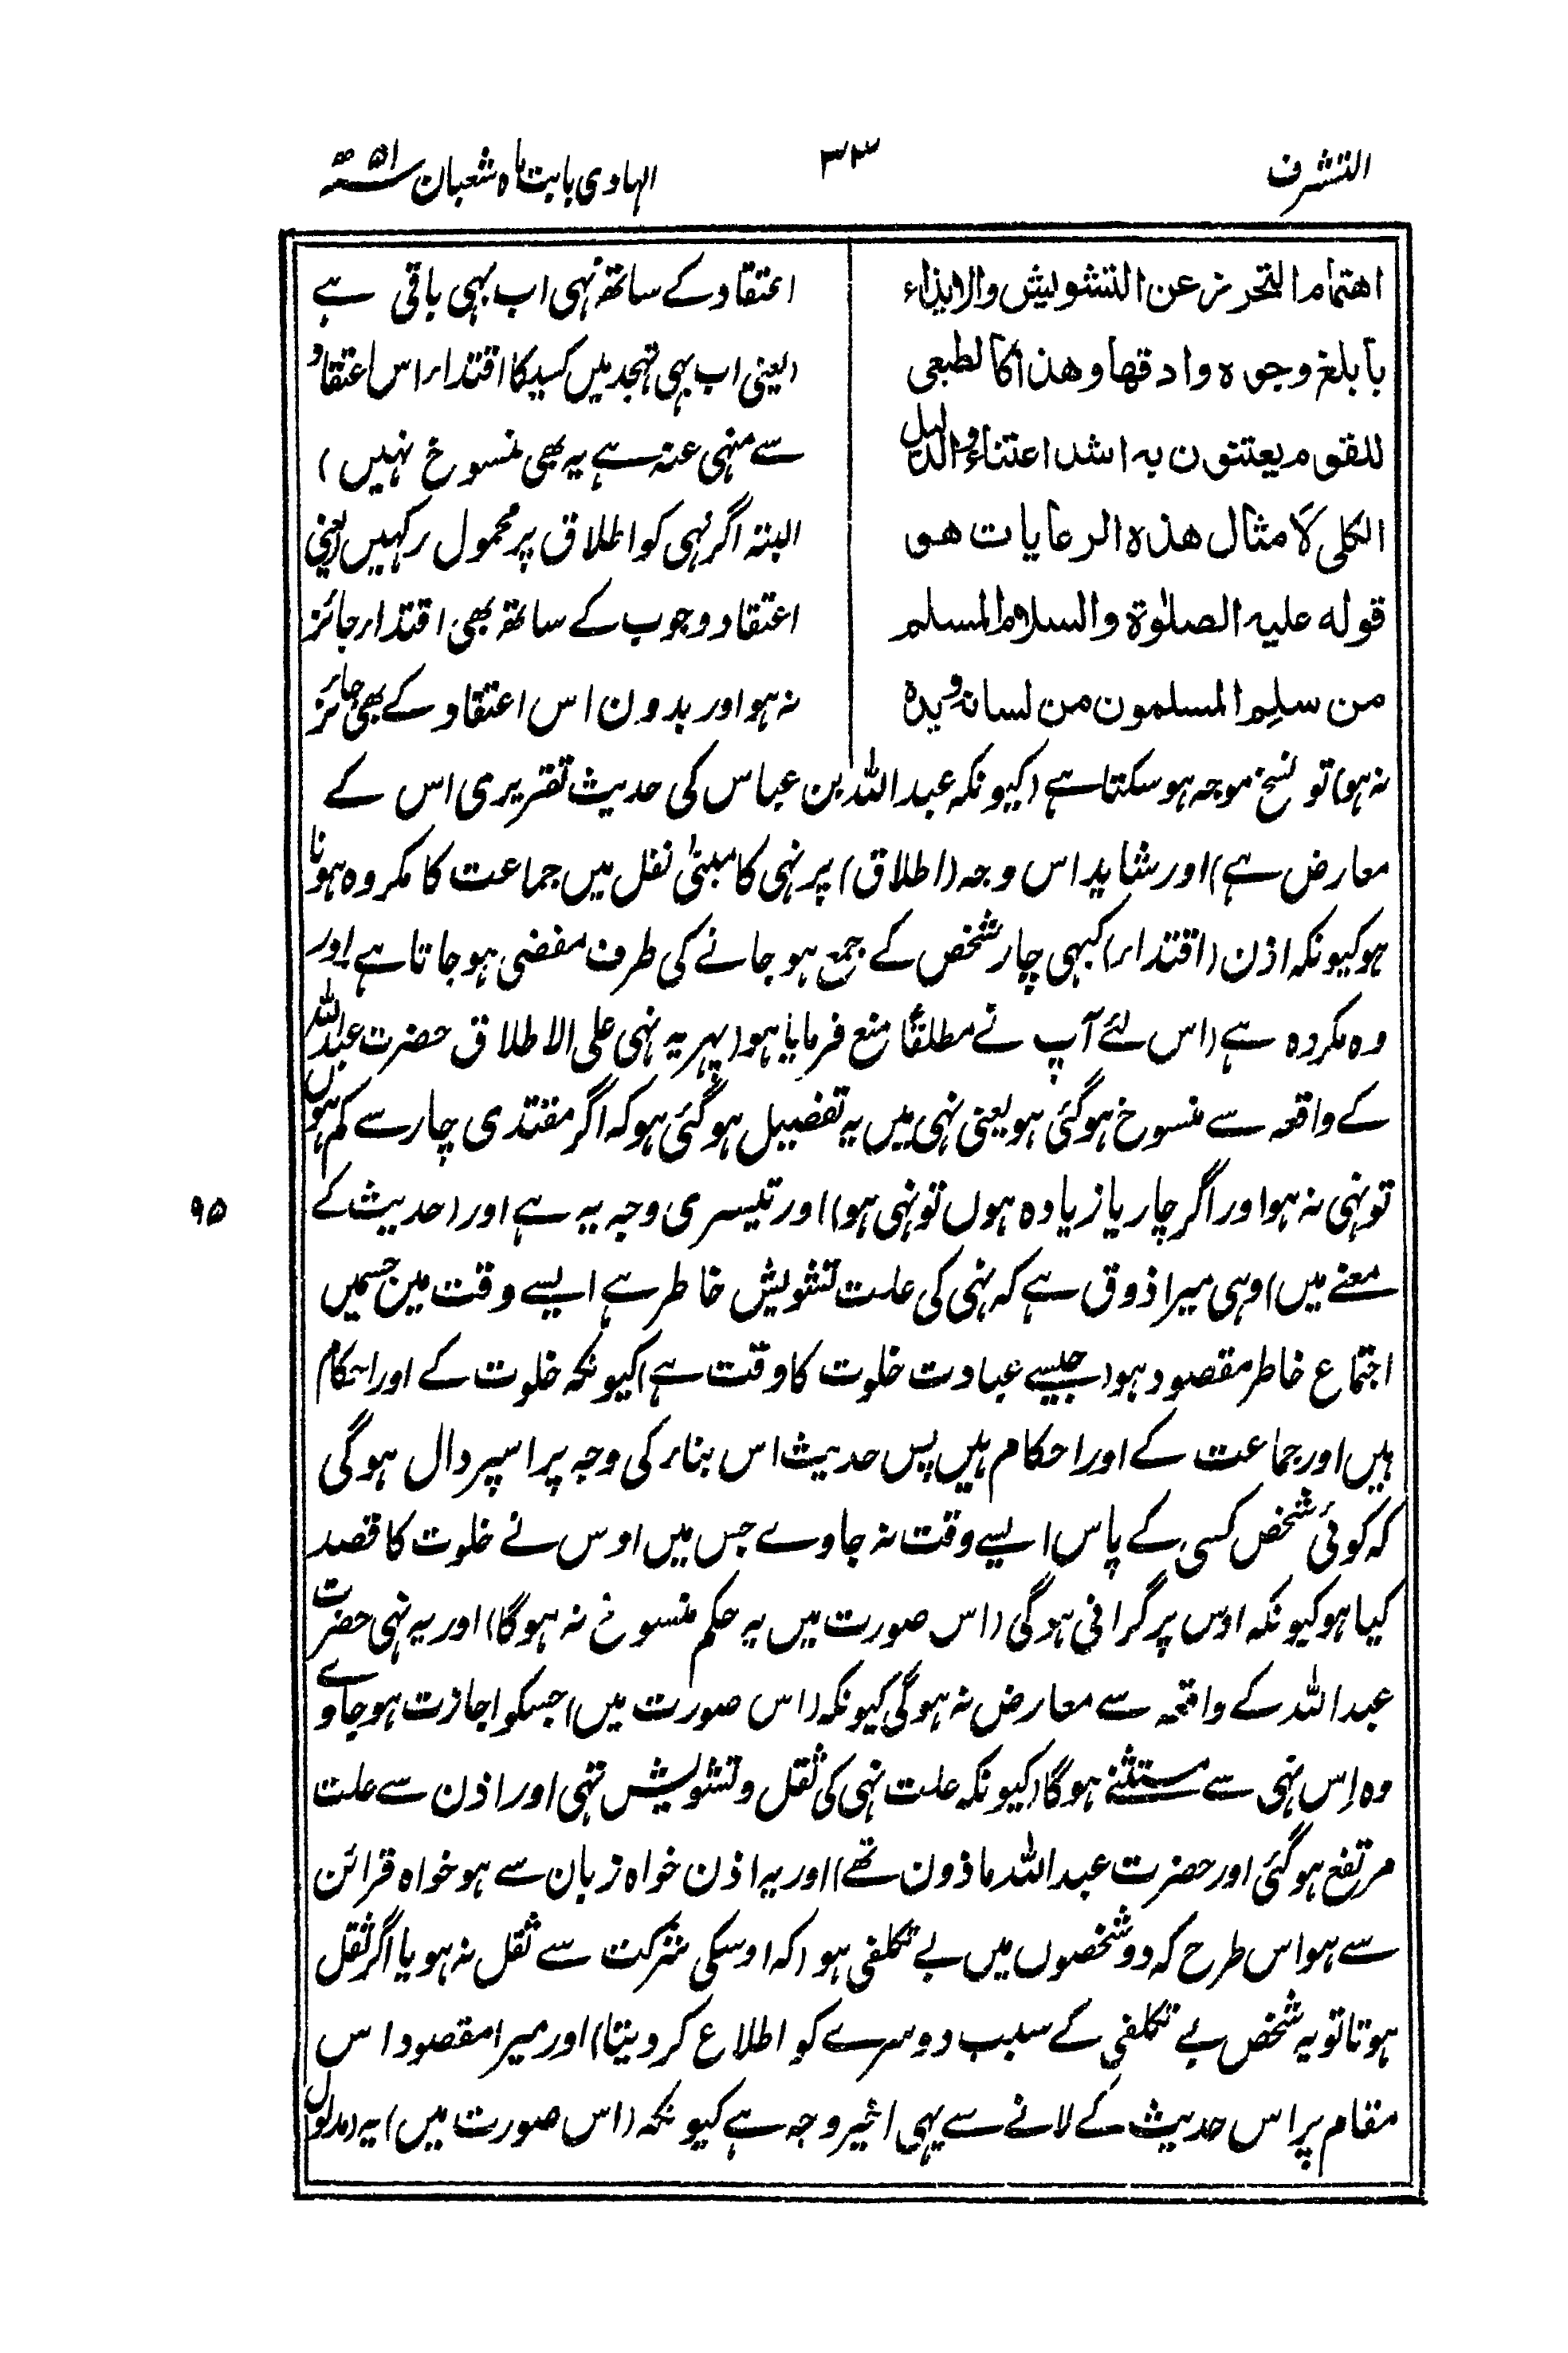 التشرف
۳۳
الہادی بابت ماہ شعبان ۵۱ھ
اهتمام التحرز عن التشويش والايذاء
بابلغ وجوه وادقها وهذا كالطبعى
للقوم يعتنون به اشد اعتناء والدليل
الكلى لامثال هذه الرعايات هو
قوله عليه الصلوٰة والسلام المسلم
من سلم المسلمون من لسانه ويده
اعتقاد کے ساتھ نہی اب بہی باقی ہے
(یعنی اب بہی تہجد میں کسیکا اقتداء اس اعتقاد
سے منہی عنہ ہے یہ بھی منسوخ نہیں)
البتہ اگر نہی کو اطلاق پر محمول رکہیں (یعنی
اعتقاد وجوب کے ساتھ بھی اقتداء جائز
نہ ہو اور بدون اس اعتقاد کے بھی جائز
نہ ہو) تو نسخ موجہ ہو سکتا ہے (کیونکہ عبد اللہ بن عباس کی حدیث تقریری اس کے
معارض ہے) اور شاید اس وجہ (اطلاق) پر نہی کا مبنیٰ نفل میں جماعت کا مکروہ ہونا
ہو کیونکہ اذن (اقتداء) کبہی چار شخص کے جمع ہو جانے کی طرف مفضی ہو جاتا ہے اور
وہ مکروہ ہے (اس لئے آپ نے مطلقاً منع فرمایا ہو (پہر یہ نہی علی الاطلاق حضرت عبد اللہ
کے واقعہ سے منسوخ ہو گئی ہو یعنی نہی میں یہ تفصیل ہو گئی ہو کہ اگر مقتدی چار سے کم ہوں
تو نہی نہ ہو اور اگر چار یا زیادہ ہوں تو نہی ہو) اور تیسری وجہ یہ ہے اور (حدیث کے
معنے میں) وہی میرا ذوق ہے کہ نہی کی علت تشویش خاطر ہے ایسے وقت مین جسمیں
اجتماع خاطر مقصود ہو (جیسے عبادت خلوت کا وقت ہے) کیونکہ خلوت کے اور احکام
ہیں اور جماعت کے اور احکام ہیں پس حدیث اس بناء کی وجہ پر اسپر دال ہوگی
کہ کوئی شخص کسی کے پاس ایسے وقت نہ جاوے جس میں اوس نے خلوت کا قصد
کیا ہو کیونکہ اوس پر گرانی ہوگی (اس صورت میں یہ حکم منسوخ نہ ہوگا) اور یہ نہی حضرت
عبد اللہ کے واقعہ سے معارض نہ ہوگی کیونکہ (اس صورت میں) جسکو اجازت ہو جاوے
وہ اِس نہی سے مستثنے ہوگا (کیونکہ علت نہی کی ثقل و تشویش تہی اور اذن سے علت
مرتفع ہو گئی اور حضرت عبد اللہ ماذون تھے) اور یہ اذن خواہ زبان سے ہو خواہ قرائن
سے ہو اس طرح کہ دو شخصوں میں بے تکلفی ہو (کہ اوسکی شرکت سے ثقل نہ ہو یا اگر ثقل
ہوتا تو یہ شخص بے تکلفی کے سبب دوسرے کو اطلاع کر دیتا) اور میرا مقصود اس
مقام پر اس حدیث کے لانے سے یہی اخیر وجہ ہے کیونکہ (اس صورت میں) یہ (مدلول
۹۵